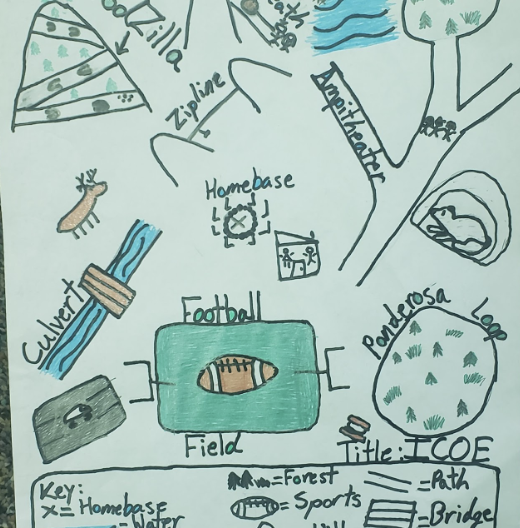 Zipline
Ampitheater
Homebase
x
Culvert
Football
Field
Ponderosa Loop
Title: ICOE
Key:
x = Homebase
= Water
= Forest
= Sports
= Path
= Bridge